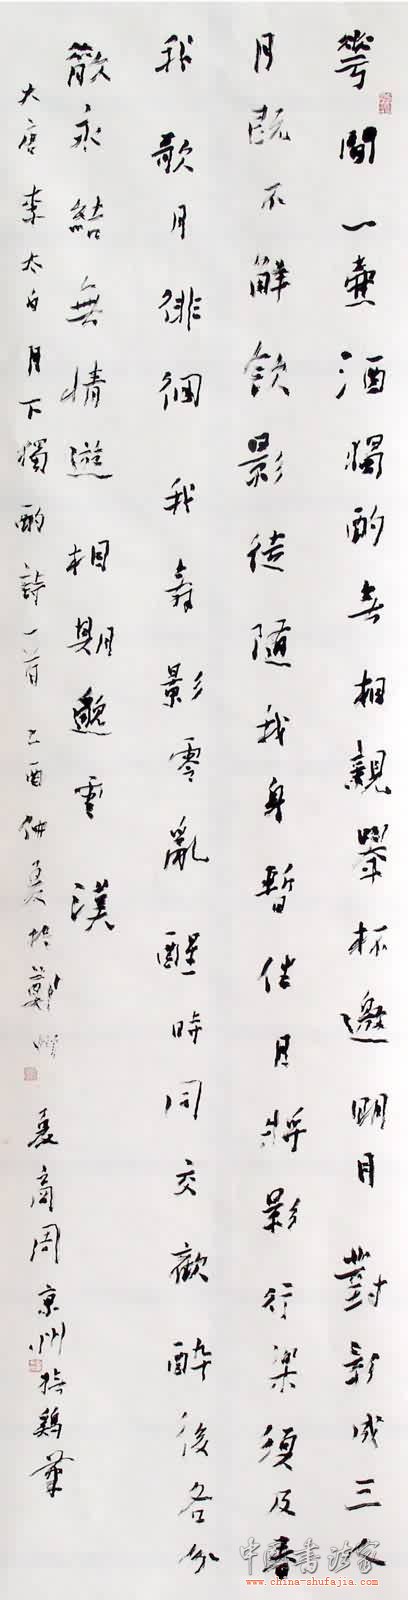 花間一壺酒獨酌無相親舉杯邀明月對影成三人
月既不解飲影徒隨我身暫伴月將影行樂須及春
我歌月徘徊我舞影零亂醒時同交歡醉後各分
散永結無情遊相期邈雲漢
大唐李太白月下獨酌詩一首乙酉仲夏於鄭州
夏商周京州
中国书法家
www.china-shufajia.com